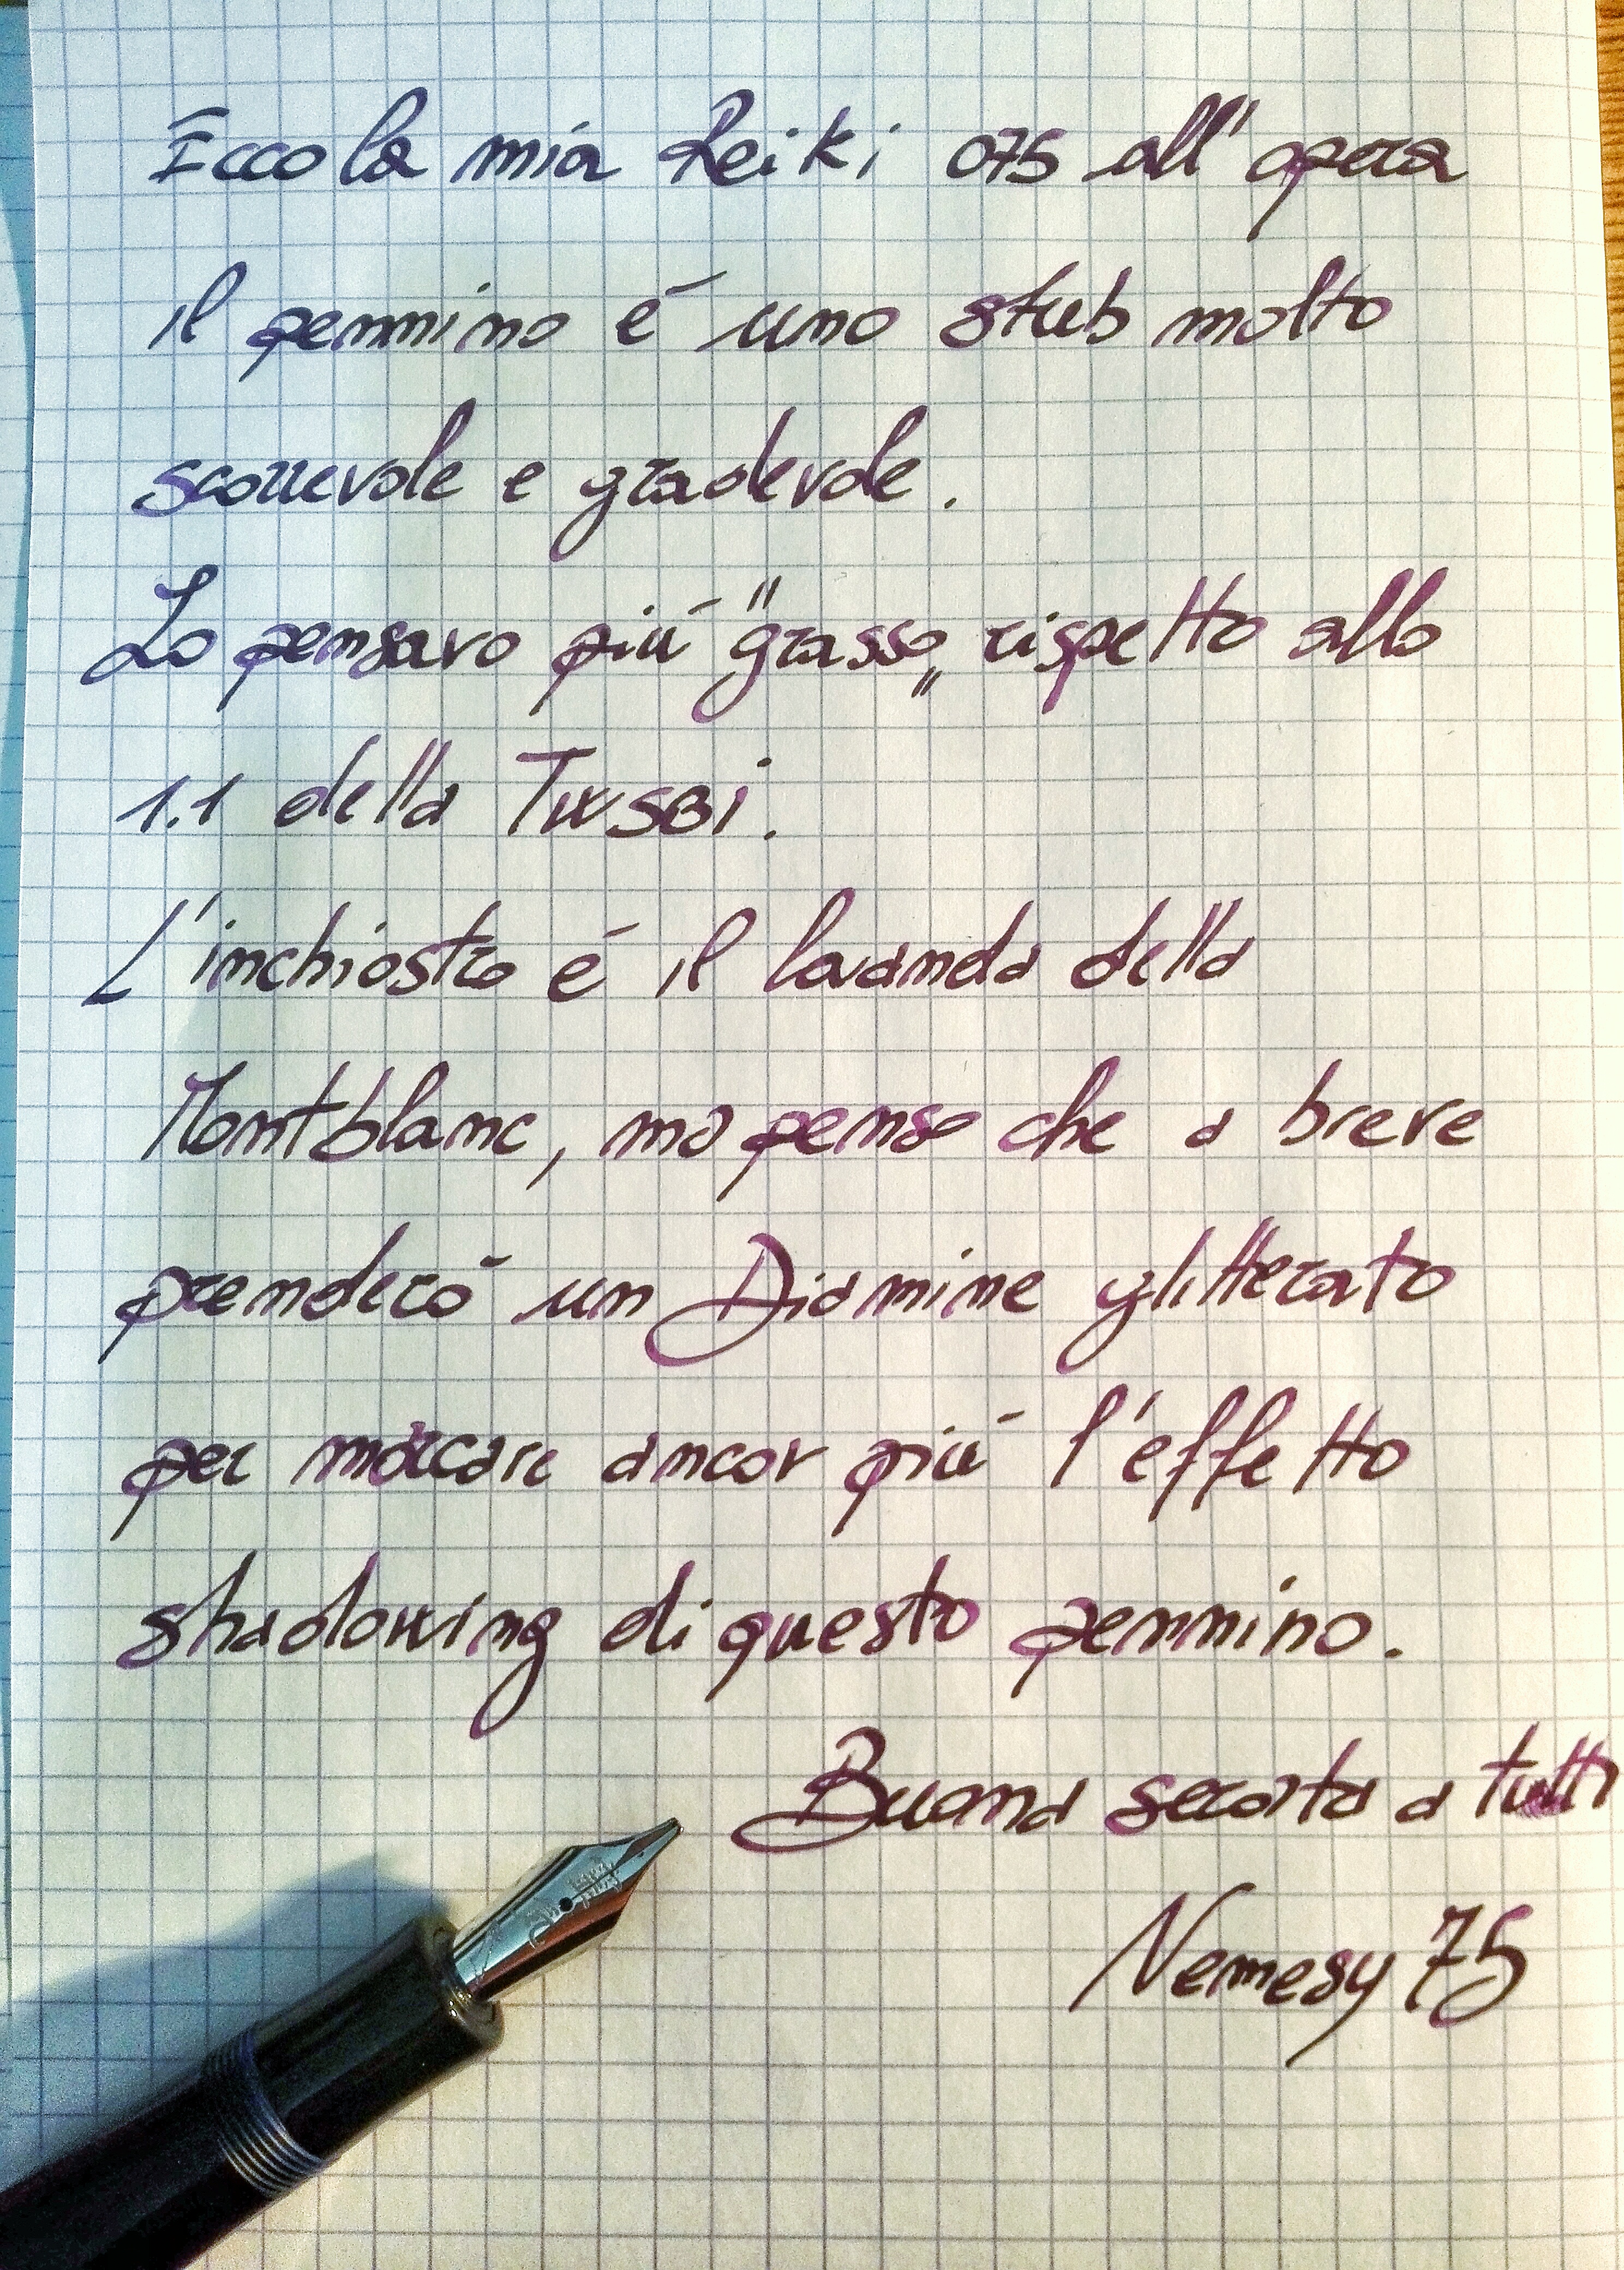 Ecco la mia Reiki 075 all'opera
il pennino é uno stub molto
scorrevole e gradevole.
Lo pensavo più "grasso" rispetto allo
1.1 della TWSBI.
L'inchiostro é il lavanda della
Montblanc, ma penso che a breve
prenderó un Diamine glitterato
per marcare ancor più l'effetto
shadowing di questo pennino.
Buona serata a tutti
Nemesy 75